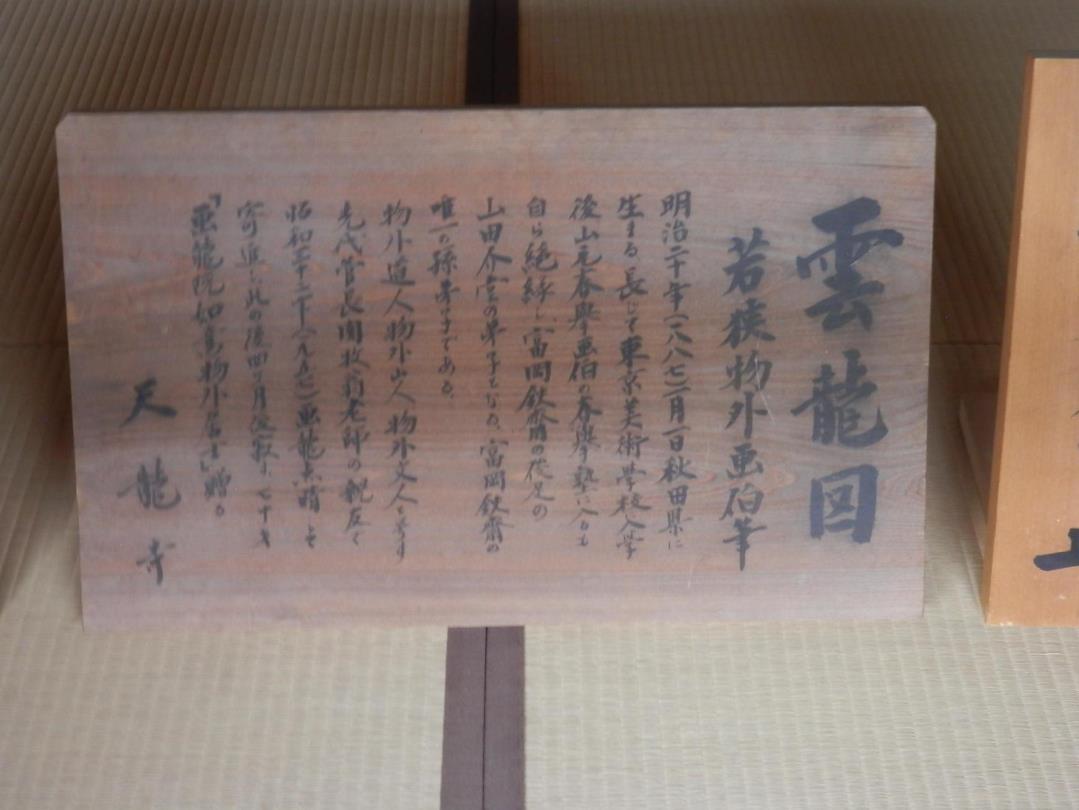 雲龍図
若狭物外画伯筆
明治二十年(一八八七)一月一日秋田県に
生まる 長じて東京美術学校に入学
後山元春擧画伯の春擧塾に入るも
自ら絶縁し 富岡鉄斎の代足の
山田介堂の弟子となる、富岡鉄斎の
唯一の孫弟子である。
物外道人 物外山人 物外文人と号す
先代管長関牧翁老師の親友で
昭和三十二年(一九五七)画龍点睛して
寄進し此の後四ヶ月後寂す、七十才
「画龍院如意物外居士」贈る
天龍寺